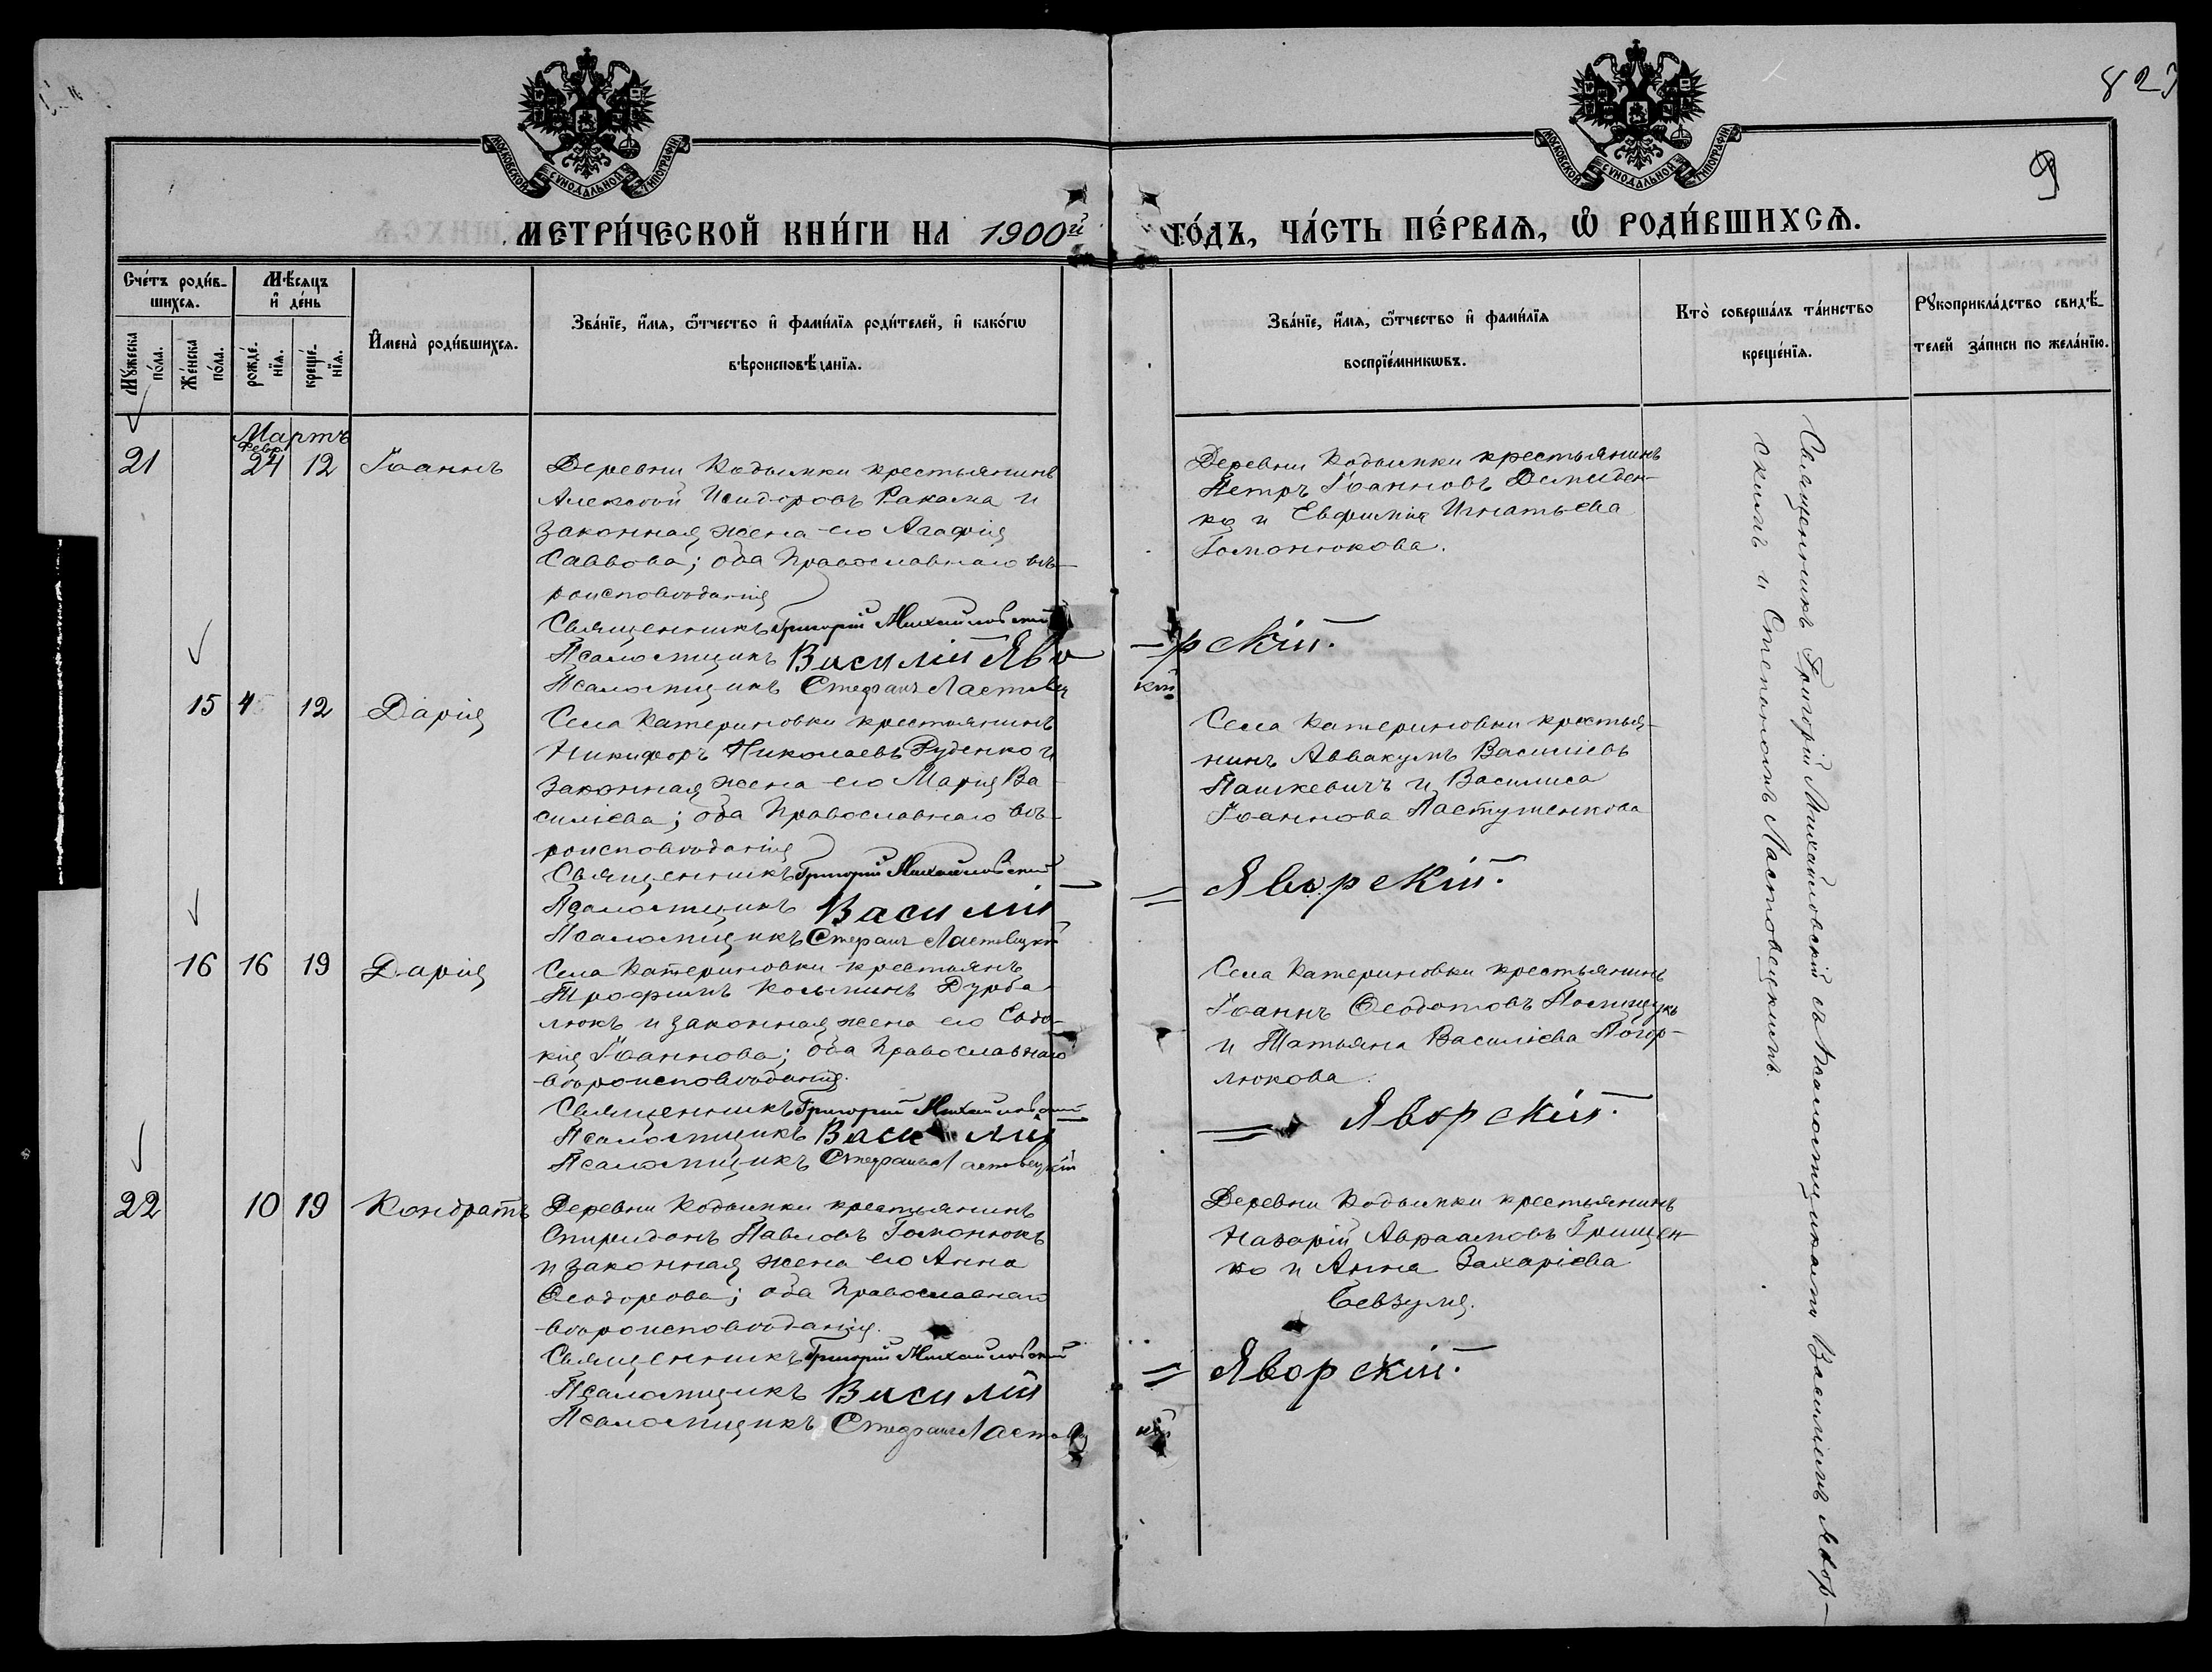 823
9
МОСКОВСКОЙ СѴНОДАЛЬНОЙ ТИПОГРАФІИ
МОСКОВСКОЙ СѴНОДАЛЬНОЙ ТИПОГРАФІИ
МЕТРИ́ЧЕСКОЙ КНИ́ГИ НА 1900й ГО́ДЪ, ЧА́СТЬ ПЕ́РВАѦ, Ѽ РОДИ́ВШИХСѦ.
Сче́тъ роди́в-
шихсѧ.
Мꙋжеска
по́ла.
Же́нска
по́ла.
Мѣ́сѧцъ
и҆ де́нь
рожде́-
нїѧ.
креще́-
нїѧ.
И҆мена̀ роди́вшихсѧ.
Зва́нїе, и҆́мѧ, ѻ҆́тчество и҆ фамі́лїѧ роди́телей, и҆ како́гѡ
вѣроисповѣ́данїѧ.
Зва́нїе, и҆́мѧ, ѻ҆́тчество и҆ фамі́лїѧ
воспрїе́мникѡвъ.
Кто̀ соверша́лъ та́инство
креще́нїѧ.
Рꙋкоприкла́дство свидѣ́-
телей за́писи по жела́нїю.
Мартъ
Февр.
21 24 12 Іоаннъ
Деревни Кодымки крестьянинъ
Алексѣй Исидоровъ Ракама и
законная жена его Агафія
Саввова; оба Православнаго вѣ-
роисповѣданія
Священникъ Григорій Михайловскій
Псаломщикъ Василій Яво-
рскій.
Псаломщикъ Стефанъ Ластовец
кій
Деревни Кодымки крестьянинъ
Петръ Іоанновъ Демиден-
ко и Евфимія Игнатьева
Гомонюкова.
15 4 12 Дарія
Села Катериновки крестьянинъ
Никифоръ Николаевъ Руденко и
законная жена его Марія Ва-
силіева; оба Православнаго вѣ-
роисповѣданія
Священникъ Григорій Михайловскій
Псаломщикъ Василій
Яворскій.
Псаломщикъ Стефанъ Ластовецкій
Села Катериновки крестья-
нинъ Аввакумъ Василіевъ
Пашкевичъ и Василиса
Іоаннова Пастушенкова
16 16 19 Дарія
Села Катериновки крестьянъ
Трофимъ Косьминъ Дурба-
люкъ и законная жена его Евдо-
кія Іоаннова; оба Православнаго
вѣроисповѣданія.
Священникъ Григорій Михайловскій
Псаломщикъ Василій
Яворскій.
Псаломщикъ Стефанъ Ластовецкій
Села Катериновки крестьянинъ
Іоаннъ Ѳеодотовъ
и Татьяна Василіева Погор-
люкова.
22 10 19 Кондратъ
Деревни Кодымки крестьянинъ
Спиридонъ Павловъ Гомонюкъ
и законная жена его Анна
Ѳеодорова; оба Православнаго
вѣроисповѣданія.
Священникъ Григорій Михайловскій
Псаломщикъ Василій
Яворскій.
Псаломщикъ Стефанъ Ластовец
кій
Деревни Кодымки крестьянинъ
Назарій Авраамовъ Грищен-
ко и Анна Захаріева
Бевзумя.
Священникъ Григорій Михайловскій съ Псаломщиками Василіемъ Явор-
скимъ и Степаномъ Ластовецкимъ.